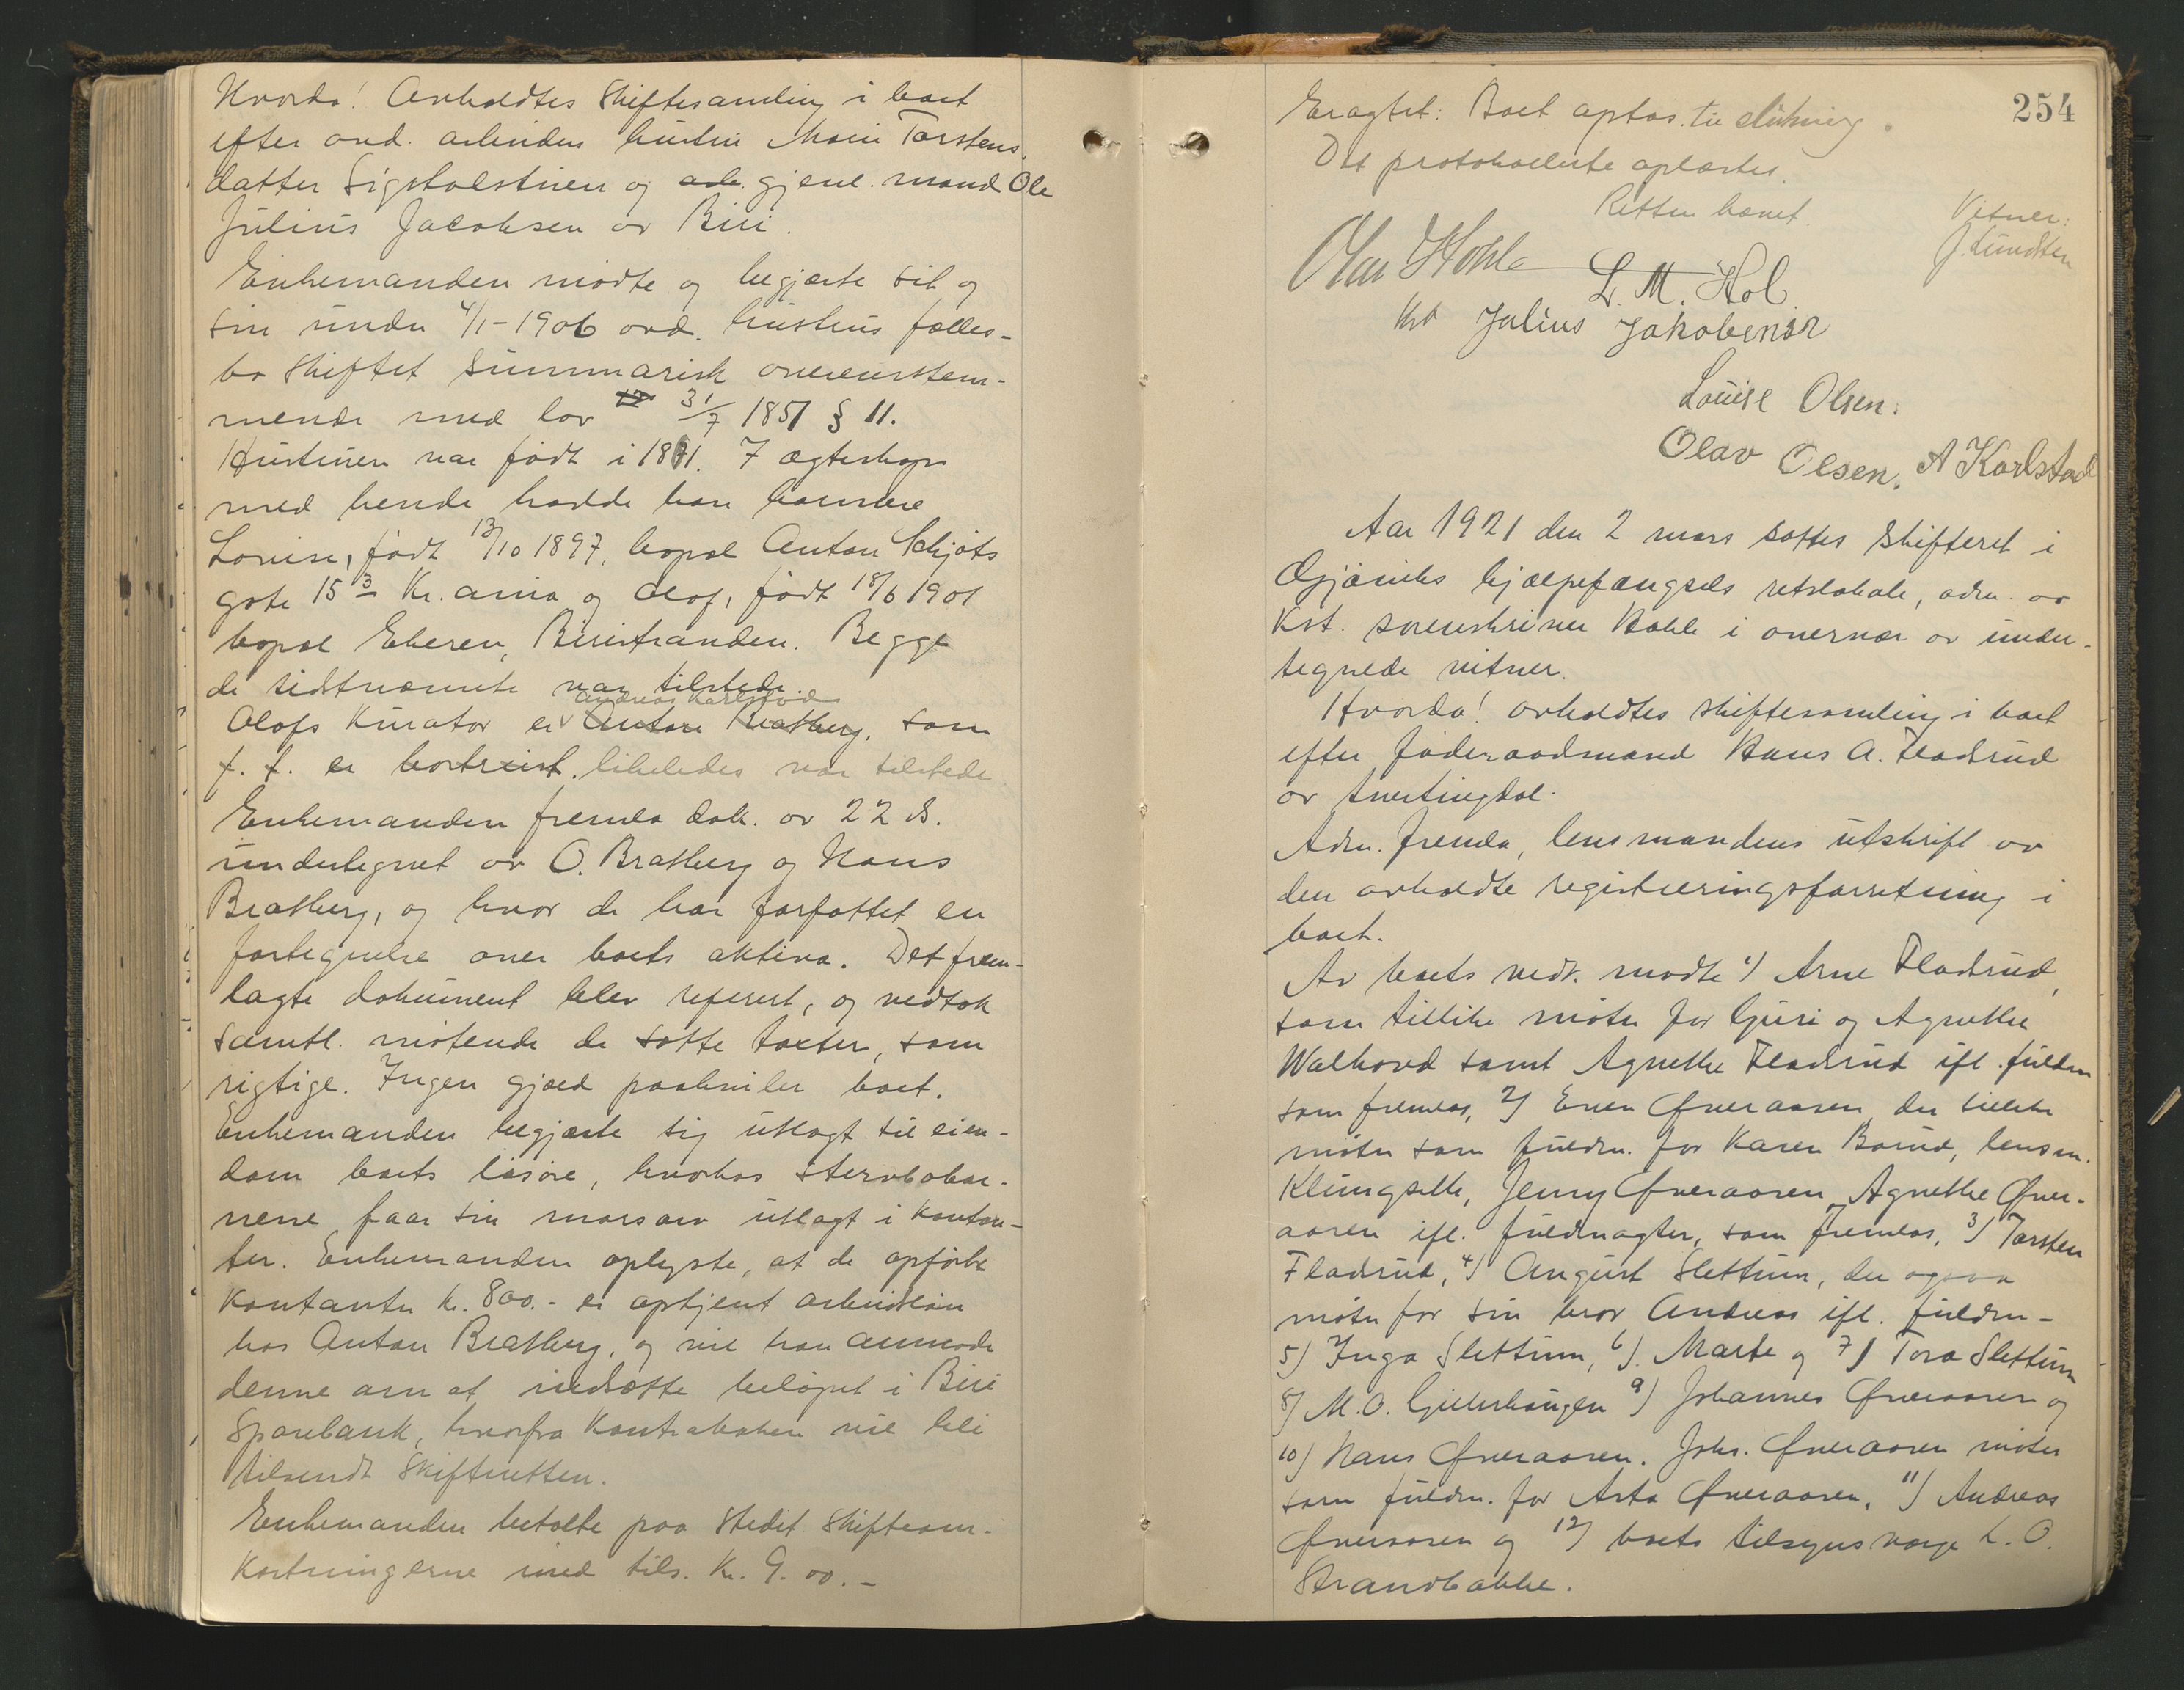 Hvorda! Avholdtes skiftesamling i boet
efter avd. arbeiders hustru Marie Torstens.
datter Sigstadstuen og gjenl. mand Ole
Julius Jacobsen av Biri.
Enkemanden mødte og begjærte sit og
sin under 4/1-1906 avd. hustrus fælles-
bo skiftet summarisk overenstem-
mende med lov 31/7 1851 § 11.
Hustruen var født i 1871. I ægteskap
med hende hadde han barnene
Louise, født 13/10 1897, bopæl Anton Schjøts
gate 15 3 Kr.ania og Olof, født 18/6 1901
bopæl Ekeren, Biristranden. Begge
de sidstnævnte var tilstede.
Andreas Karlstad
Olofs kurator er Anton Bratberg, som
f. t. er bortreist. likeledes var tilstede
Enkemanden fremla dok. av 22 ds.
undertegnet av O. Bratberg og Hans
Bratberg, og hvor de har forfattet en
fortegnelse over boets aktiva. Det frem-
lagte dokument blev referert, og vedtok
samtl. møtende de satte takster, som
rigtige. Ingen gjæld paahviler boet.
Enkemanden begjærte sig utlagt til eien-
dom boets løsøre, hvorhos stervbobar-
nene faar sin morsarv utlagt i kontan-
ter. Enkemanden oplyste, at de opførte
kontanter kr. 800.- er optjent arbeidsløn
hos Anton Bratberg, og vil han anmode
denne om at indsætte beløpet i Biri
Sparebank, hvorfra kontraboken vil bli
tilsendt Skifteretten.
Enkemanden betalte paa stedet skifteom-
kostningerne med tils. kr. 9.00.-
254
Eragtet: Boet optas til slutning.
Det protokollerte oplæstes.
Retten hævet.
Vitner:
J. Lundsten
Olav Hohle
L. M. Hol.
Julius Jakobensen
Louise Olsen.
Olav Olsen. A Karlstad
Aar 1921 den 2 mars sattes skifteret i
Gjøviks hjælpefængsels retslokale, adm. av
Kst. sorenskriver Hohle i overvær av under-
tegnede vitner.
Hvorda! avholdtes skiftesamling i boet
efter føderaadmand Hans A. Fladsrud
av Snertingdal.
Adm. fremla, lensmandens utskrift av
den avholdte registreringsforretning i
boet.
Av boets vedk. mødte 1) Arne Fladsrud,
som tillike møter for Guri og Agnethe
Walhovd samt Agnethe Fladsrud ifl. fuldm
som fremlas, 2) Even Øveraasen der tillike
møter som fuldm. for Karen Borud, lensm.
Klungselte, Jenny Øveraasen, Agnethe Øver-
aasen ifl. fuldmagter, som fremlas, 3) Torsten
Fladsrud, 4) August Slettum, der ogsaa
møter for sin bror Andreas ifl. fuldm-
5) Inga Slettum, 6) Marte og 7) Tora Slettum
8) M. O. Gillerhaugen 9) Johannes Øveraasen og
10) Hans Øveraasen. Johs. Øveraasen møter
som fuldm. for Asta Øveraasen. 11) Andreas
Øveraasen og 12) boets tilsynsværge L. O.
Strandbakke.